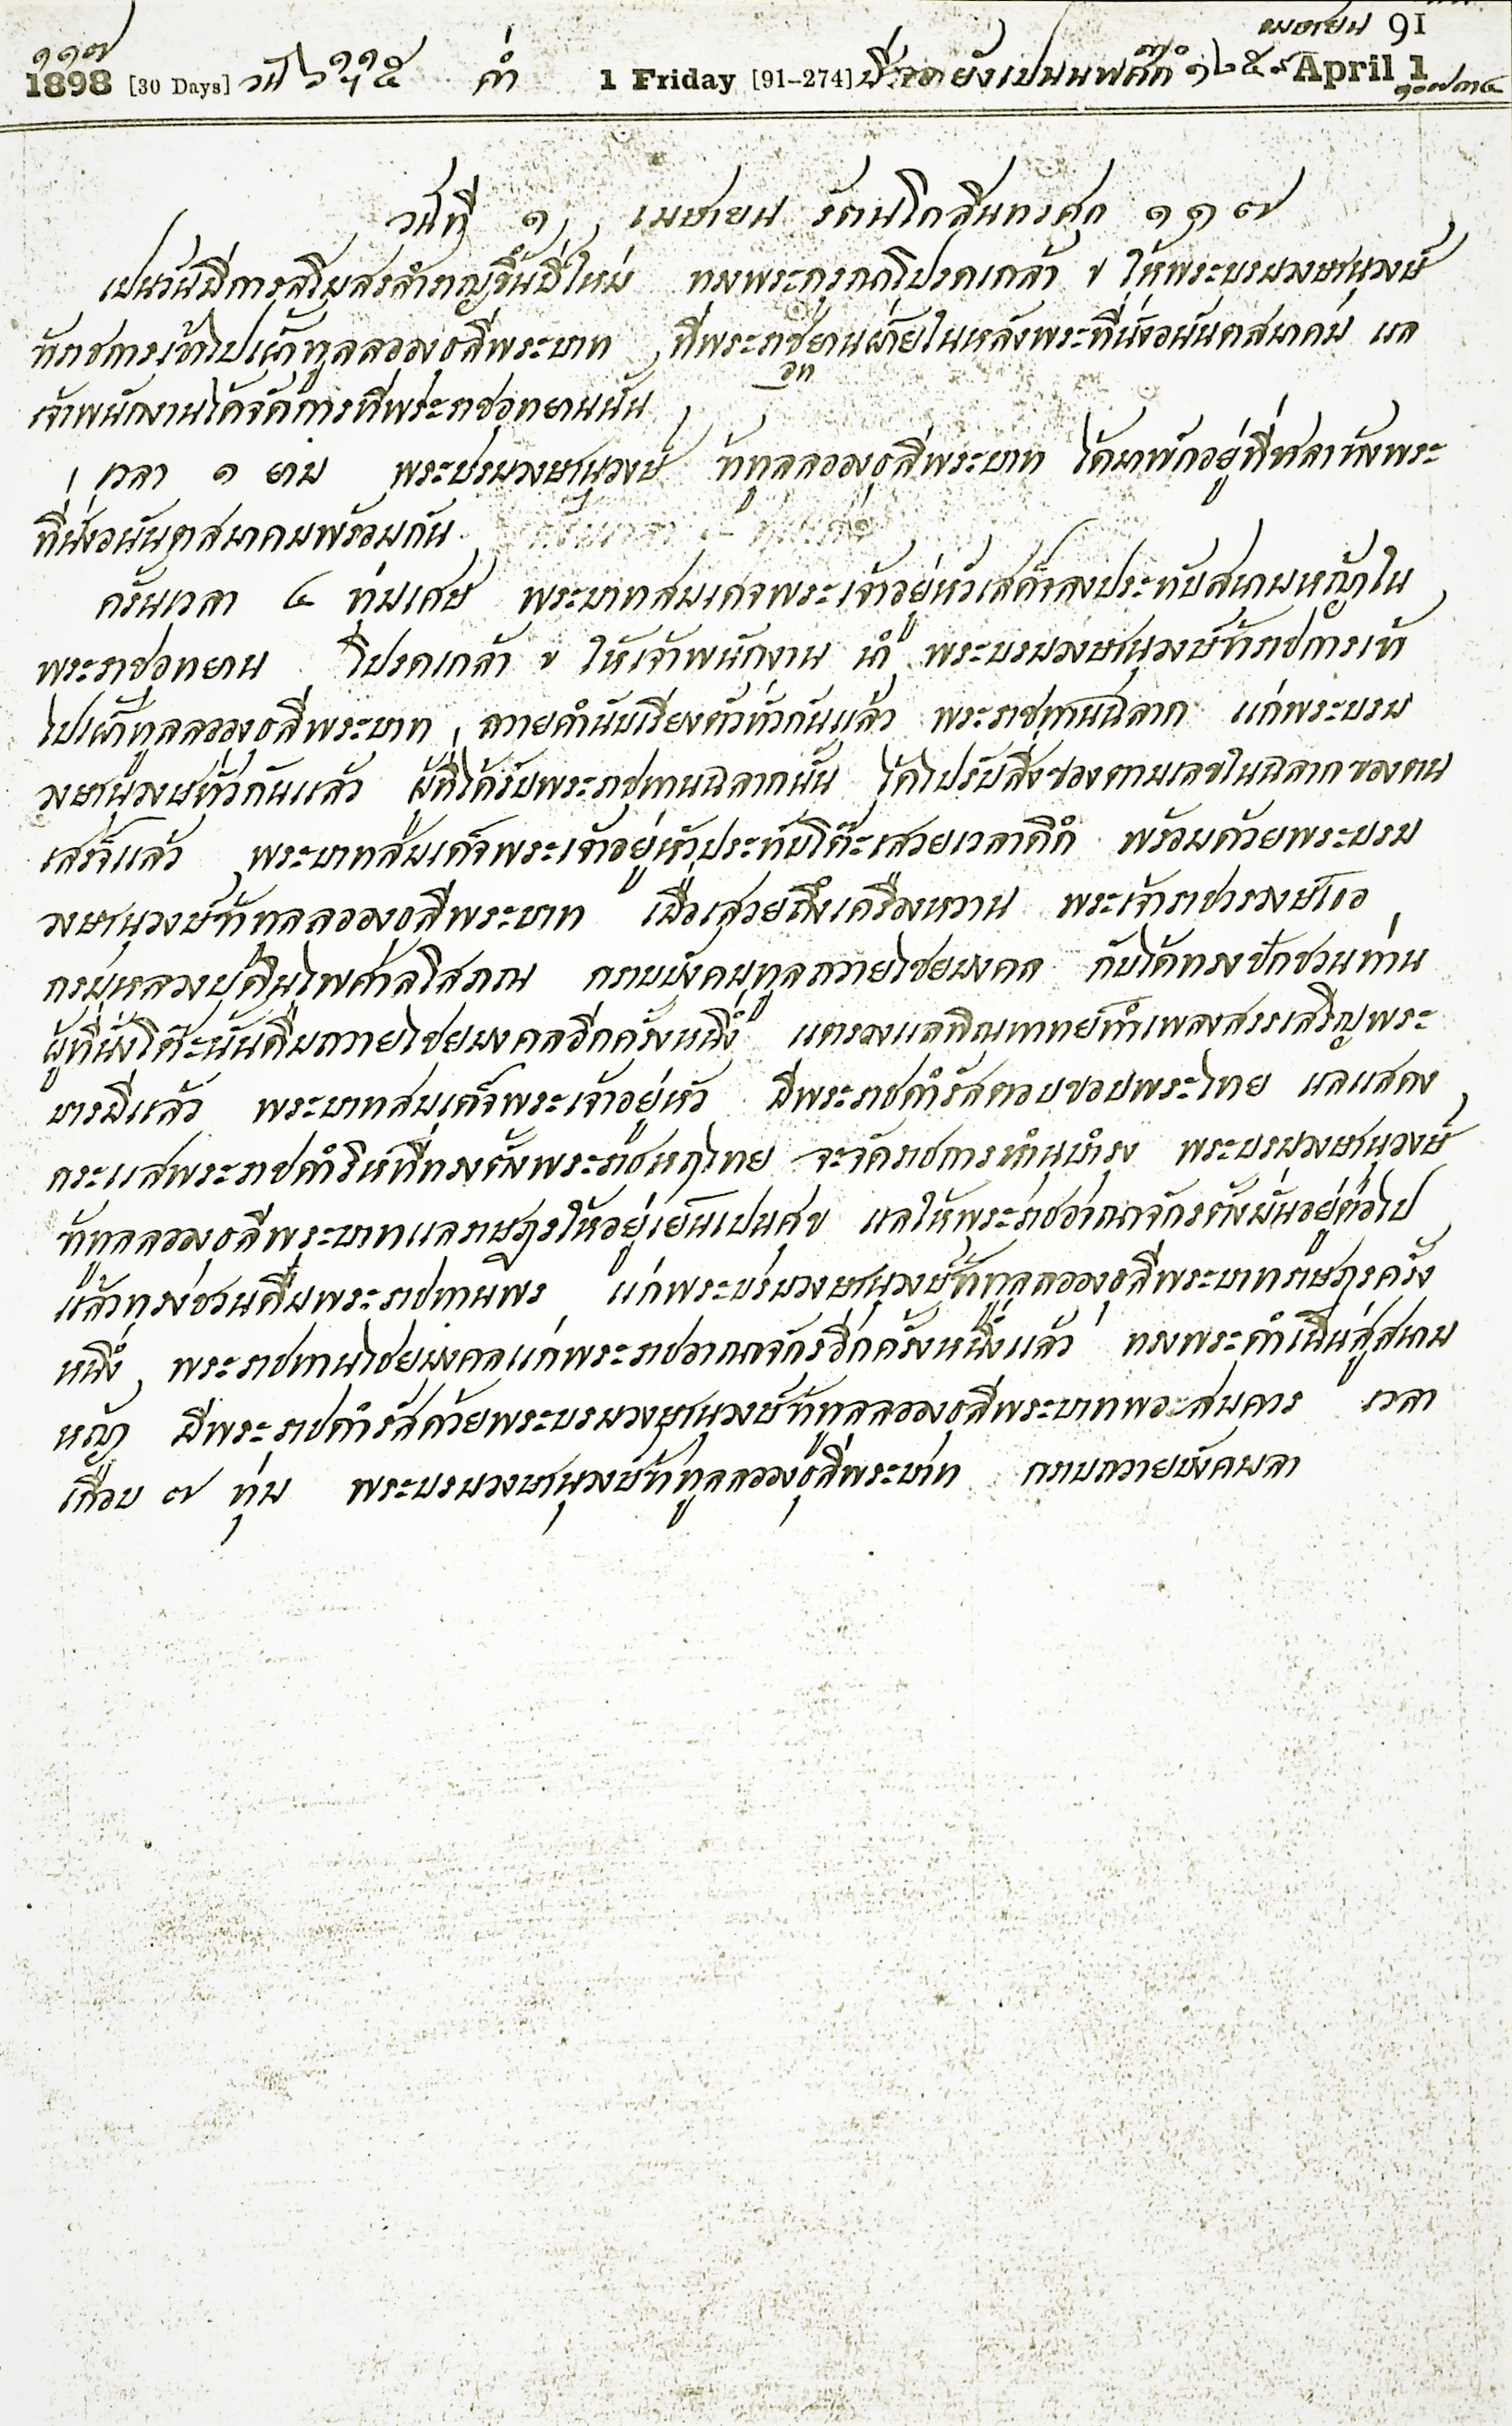 เมษายน 91
๑๑๗
1898 [30 Days] วัน ๖ ๑๑ ๕ ค่ำ 1 Friday [91-274] ปีจอยังเปนนพศ๊ก ๑๒๕๙ April 1
๑๐๗๓๔
วันที่ ๑ เมษายน รัตนโกสินทรศก ๑๑๗
เปนวันมีการสโมสรสำราญขึ้นปีใหม่ ทรงพระกรุณาโปรดเกล้า ฯ ให้พระบรมวงษานุวงษ์
ข้าราชการเข้าไปเฝ้าทูลลอองธุลีพระบาท ที่พระราชอุทยานภายในหลังพระที่นั่งอนันตสมาคม แล
เจ้าพนักงานได้จัดการที่พระราชอุทยานนั้น
เวลา ๑ ยาม พระบรมวงษานุวงษ์ ข้าทูลลอองธุลีพระบาท ได้มาพักอยู่ที่ศาลาข้างพระ
ที่นั่งอนันตสมาคมพร้อมกัน
ครั้นเวลา ๔ ทุ่มเศษ พระบาทสมเดจพระเจ้าอยู่หัวเสด็จลงประทับสนามหญ้าใน
พระราชอุทยาน โปรดเกล้า ฯ ให้เจ้าพนักงาน นำ พระบรมวงษานุวงษ์ข้าราชการเข้า
ไปเฝ้าทูลลอองธุลีพระบาท ถวายคำนับเรียงตัวทั่วกันแล้ว พระราชทานฉลาก แก่พระบรม
วงษานุวงษทั่วกันแล้ว ผู้ที่ได้รับพระราชทานฉลากนั้น ได้ไปรับสิ่งของตามเลขในฉลากของตน
เสร็จแล้ว พระบาทสมเด็จพระเจ้าอยู่หัวประทับโต๊ะเสวยเวลาดึก พร้อมด้วยพระบรม
วงษานุวงษ์ข้าทูลลอองธุลีพระบาท เมื่อเสวยถึงเครื่องหวาน พระเจ้าราชวรวงษ์เธอ
กรมหลวงบดินไพศาลโสภณ กราบบังคมทูลถวายไชยมงคล กับได้ทรงชักชวนท่าน
ผู้ที่นั่งโต๊ะนั้นดื่มถวายไชยมงคลอีกครั้งหนึ่ง แตรวงแลพิณพาทย์ทำเพลงสรรเสริญพระ
บารมีแล้ว พระบาทสมเด็จพระเจ้าอยู่หัว มีพระราชดำรัสตอบขอบพระไทย แลแสดง
กระแสพระราชดำริห์ที่ทรงตั้งพระราชหฤไทย จะจัดราชการทำนุบำรุง พระบรมวงษานุวงษ์
ข้าทูลลอองธุลีพระบาทแลราษฎรให้อยู่เย็นเปนศุข แลให้พระราชอาณาจักรตั้งมั่นอยู่ต่อไป
แล้วทรงชวนดื่มพระราชทานพร แก่พระบรมวงษานุวงษ์ข้าทูลลอองธุลีพระบาทราษฎรครั้ง
หนึ่ง พระราชทานไชยมงคลแก่พระราชอาณาจักรอีกครั้งหนึ่งแล้ว ทรงพระดำเนินสู่สนาม
หญ้า มีพระราชดำรัสด้วยพระบรมวงษานุวงษ์ข้าทูลลอองธุลีพระบาทพอสมควร เวลา
เกือบ ๗ ทุ่ม พระบรมวงษานุวงษ์ข้าทูลลอองธุลีพระบาท กราบถวายบังคมลา